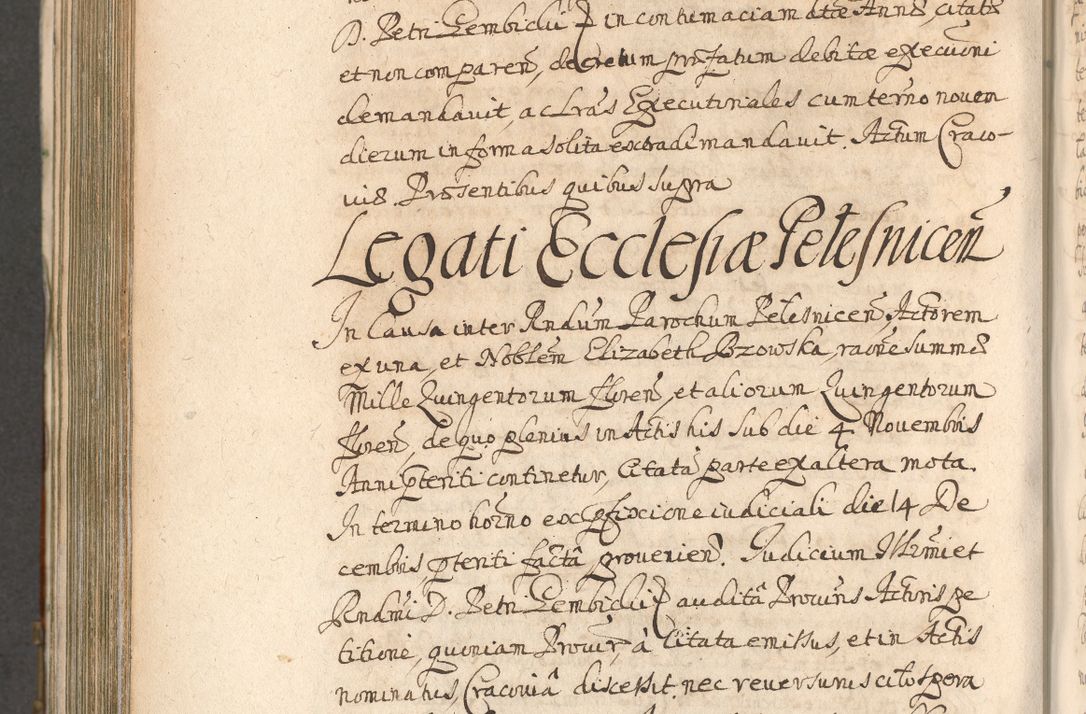 D. Petri Gembicki in contumaciam dtæ Annæ citatæ
et non comparen, decretum præfatum debitæ executioni
demandavit, ac Lras Executoriales cum terno novem
dierum in forma solita extradi mandavit. Actum Craco-
viæ. Præsentibus quibus supra
Legati Ecclesiæ Pelesnicen
In Causa inter Rndum Parochum Pelesnicen, Actorem
ex una, et Noblem Elizabeth Bzowska, raone summæ
Mille Quingentorum floren, et aliorum Quingentorum
floren, de quo plenius in Actis his sub die 4 Novembris
Anni pteriti continetur, Citatâ parte ex altera mota.
In termino horno ex pfixcione iudiciali die 14 De
cembris pteriti factâ provenien. Judicium Illrmi et
Rndmi D. Petri Gembicki auditâ Provins Actoris pe
titione, quoniam Provir, à Citata emissus, et in Actis
nominatus, Cracoviâ discessit. nec reversurus cito spera